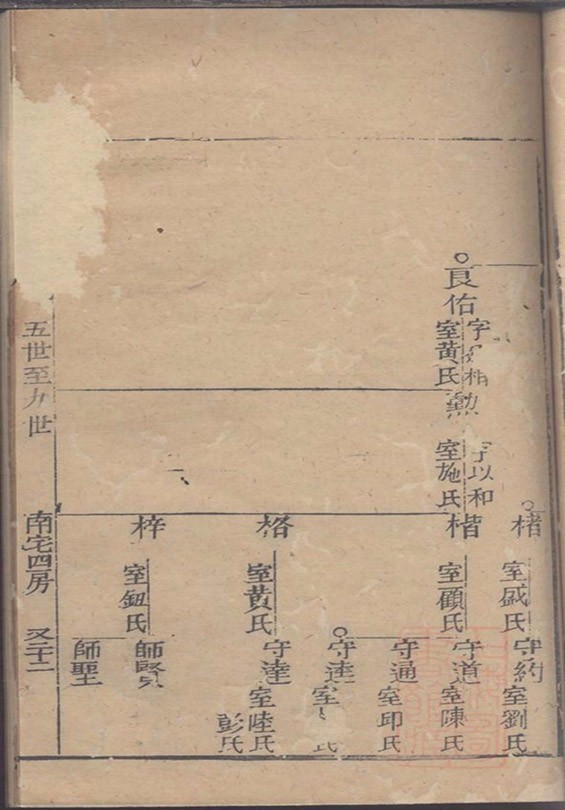 良佑
字 相
室黃氏
勲
字以和
室施氏
楮
室戚氏
守約
室劉氏
楷
室顧氏
守道
室陳氏
守通
室邱氏
守逵
室 氏
格
室黄氏
守達
室陸氏
彭氏
梓
室鈕氏
師賢
師聖
五世至九世
南宅四房
又二十二